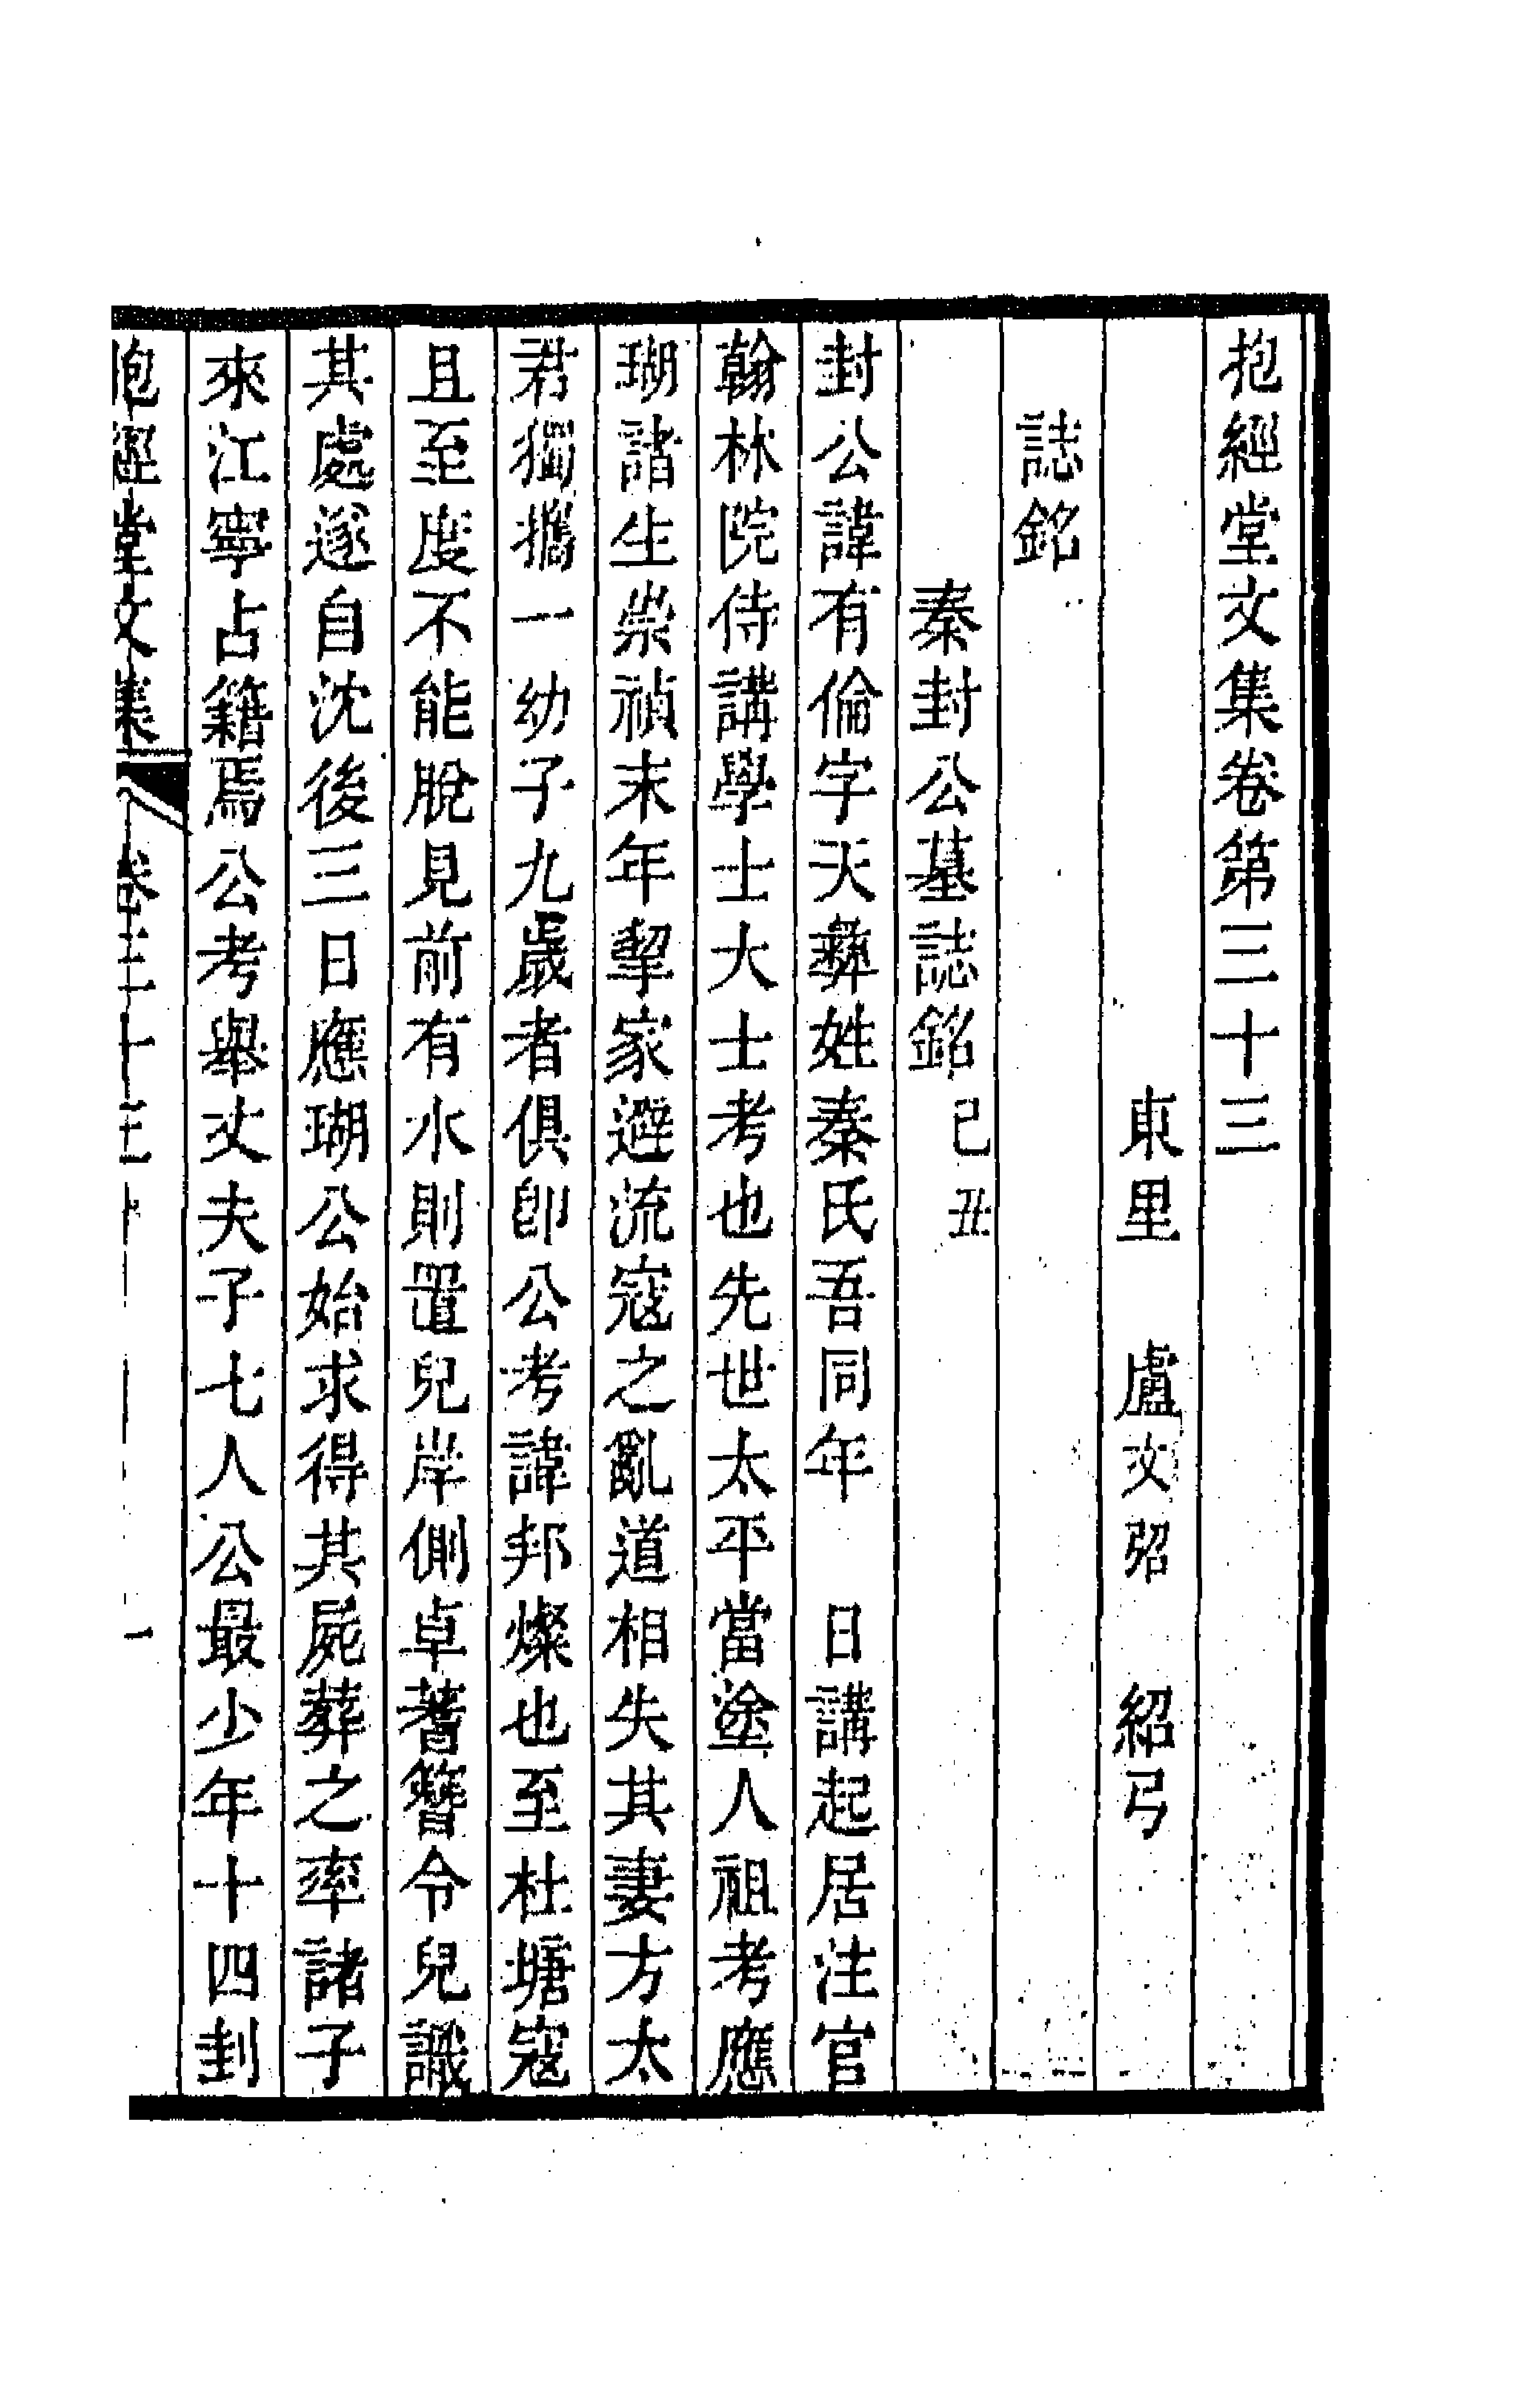 抱經堂文集卷第三十三
東里 盧文弨 紹弓
誌銘
秦封公墓誌銘己丑
封公諱有倫字天彝姓秦氏吾同年 日講起居注官
翰林院侍講學士大士考也先世太平當塗人祖考應
瑚諸生崇禎末年挈家避流寇之亂道相失其妻方太
君獨攜一幼子九歲者俱卽公考諱邦燦也至杜塘寇
且至度不能脫見前有水則置兒岸側卓蓍簪令兒識
其處遂自沈後三日應瑚公始求得其屍葬之率諸子
來江寧占籍焉公考舉丈夫子七人公最少年十四刲
抱經堂文集 卷三十三 一